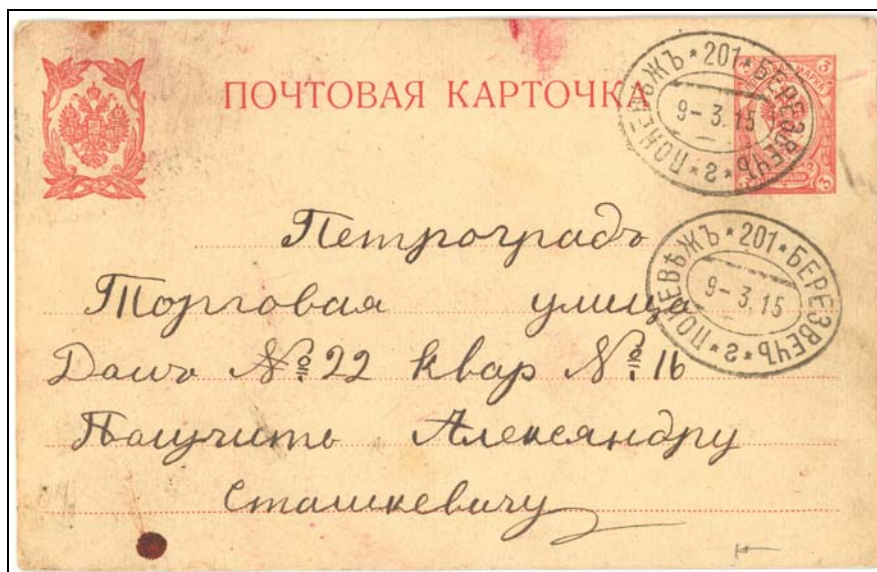 ПОЧТОВАЯ КАРТОЧКА
ПОНЕВѢЖЪ * 201 * БЕРЕЗВЕЧЬ * 2 *
9-3.15
3 3
Петроградъ
ПОНЕВѢЖЪ * 201 * БЕРЕЗВЕЧЬ * 2 *
9-3.15
Торговая улица
Домъ № 22 квар № 16
Получить Александру
Сташкевичу